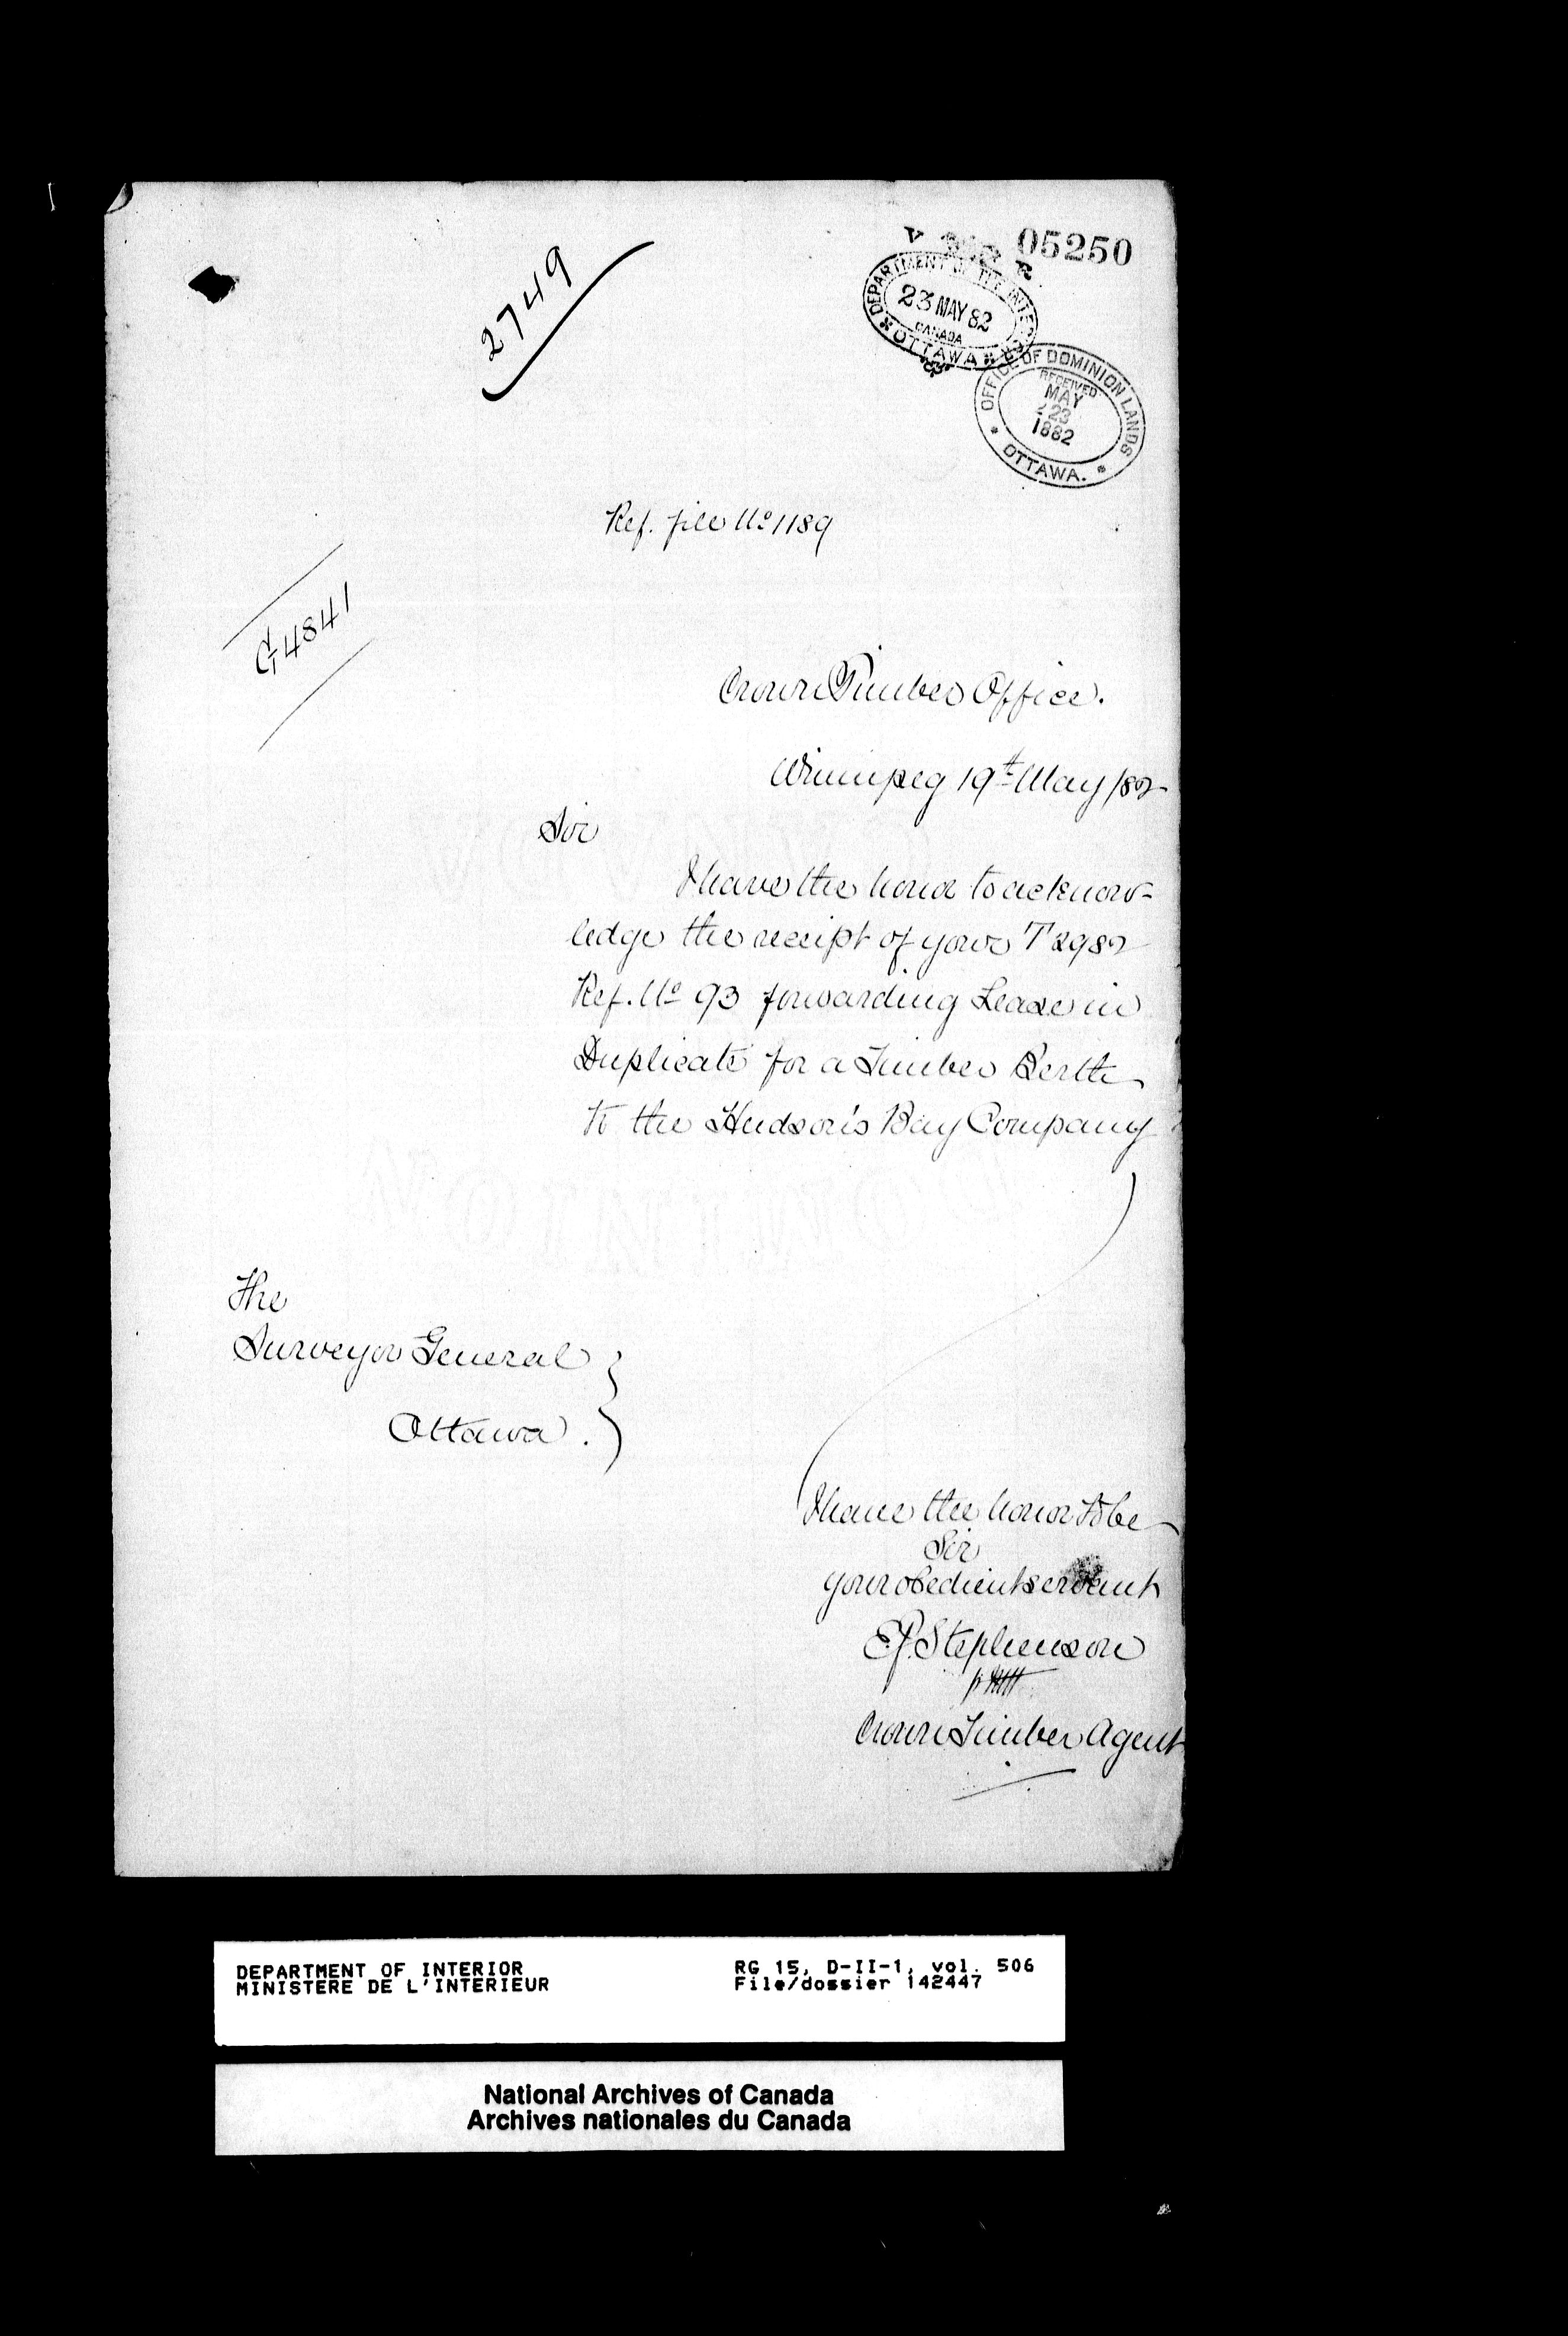 05250
2749
DEPARTMENT OF THE INTERIOR
23 MAY 82
CANADA
OTTAWA
OFFICE OF DOMINION LANDS
RECEIVED
MAY
23
1882
OTTAWA.
Ref. file No 1189
G4841
Crown Timber Office.
Winnipeg 19th May /82
Sir
I have the honor to acknow-
ledge the receipt of yours T 2982
Ref. No 93 forwarding Lease in
Duplicate for a Timber Berth
to the Hudson's Bay Company
The
Surveyor General
Ottawa.
I have the honor to be
Sir
your obedient servant
Stephenson
Crown Timber Agent
DEPARTMENT OF INTERIOR
MINISTERE DE L'INTERIEUR
RG 15, D-II-1, vol. 506
File/dossier 142447
National Archives of Canada
Archives nationales du Canada